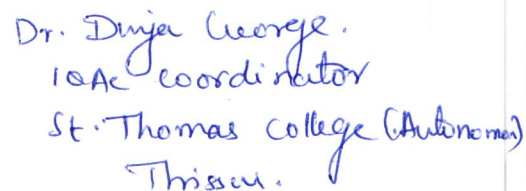 Dr. Dinja George.
IQAC Coordinator
St. Thomas College (Autonomous)
Thrissur.